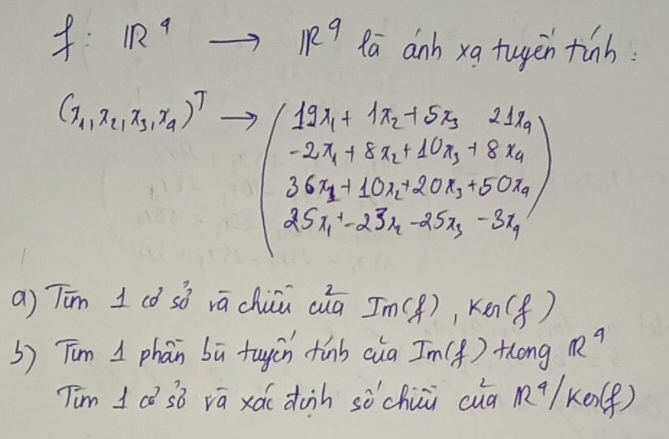 f: ℝ⁴ → ℝ⁴ là ánh xạ tuyến tính:
(x₁, x₂, x₃, x₄)ᵀ → ( 19x₁ + 1x₂ + 5x₃ 21x₄
-2x₁ + 8x₂ + 10x₃ + 8x₄
36x₁ + 10x₂ + 20x₃ + 50x₄
25x₁ + -23x₂ - 25x₃ - 3x₄ )
a) Tìm 1 cơ sở và chiều của Im(f), Ker(f)
b) Tìm 1 phần bù tuyến tính của Im(f) trong ℝ⁴
Tìm 1 cơ sở và xác định số chiều của ℝ⁴/Ker(f)